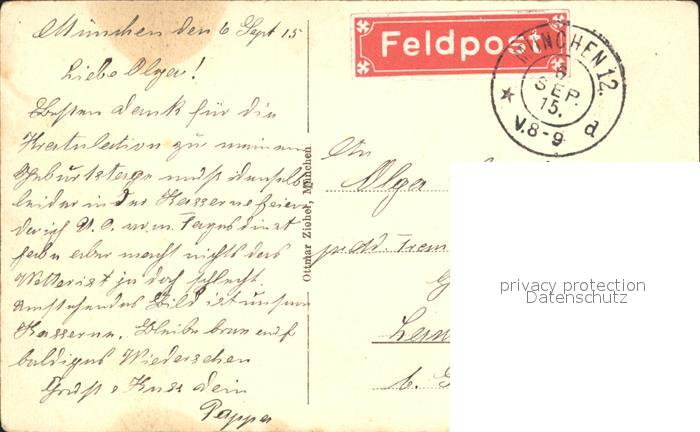 München den 6 Sept 15
Liebe Olga!
Besten Dank für die
Kratulation zu meinem
Geburtstage muß denselb
leider in der Kasserne feiern
da ich U.O. v. Tagesdinst
habe aber macht nichts das
Wetter ist ja doch schlecht
umstehendes Bild ist unsere
Kasserne. Bleibe brav auf
baldiges Wiedersehen
Gruß & Kuss dein
Pappa
Ottmar Zieher, München
Feldpost
MÜNCHEN 12.
6
SEP.
15.
V.8-9
a
An
Olga
privacy protection
Datenschutz